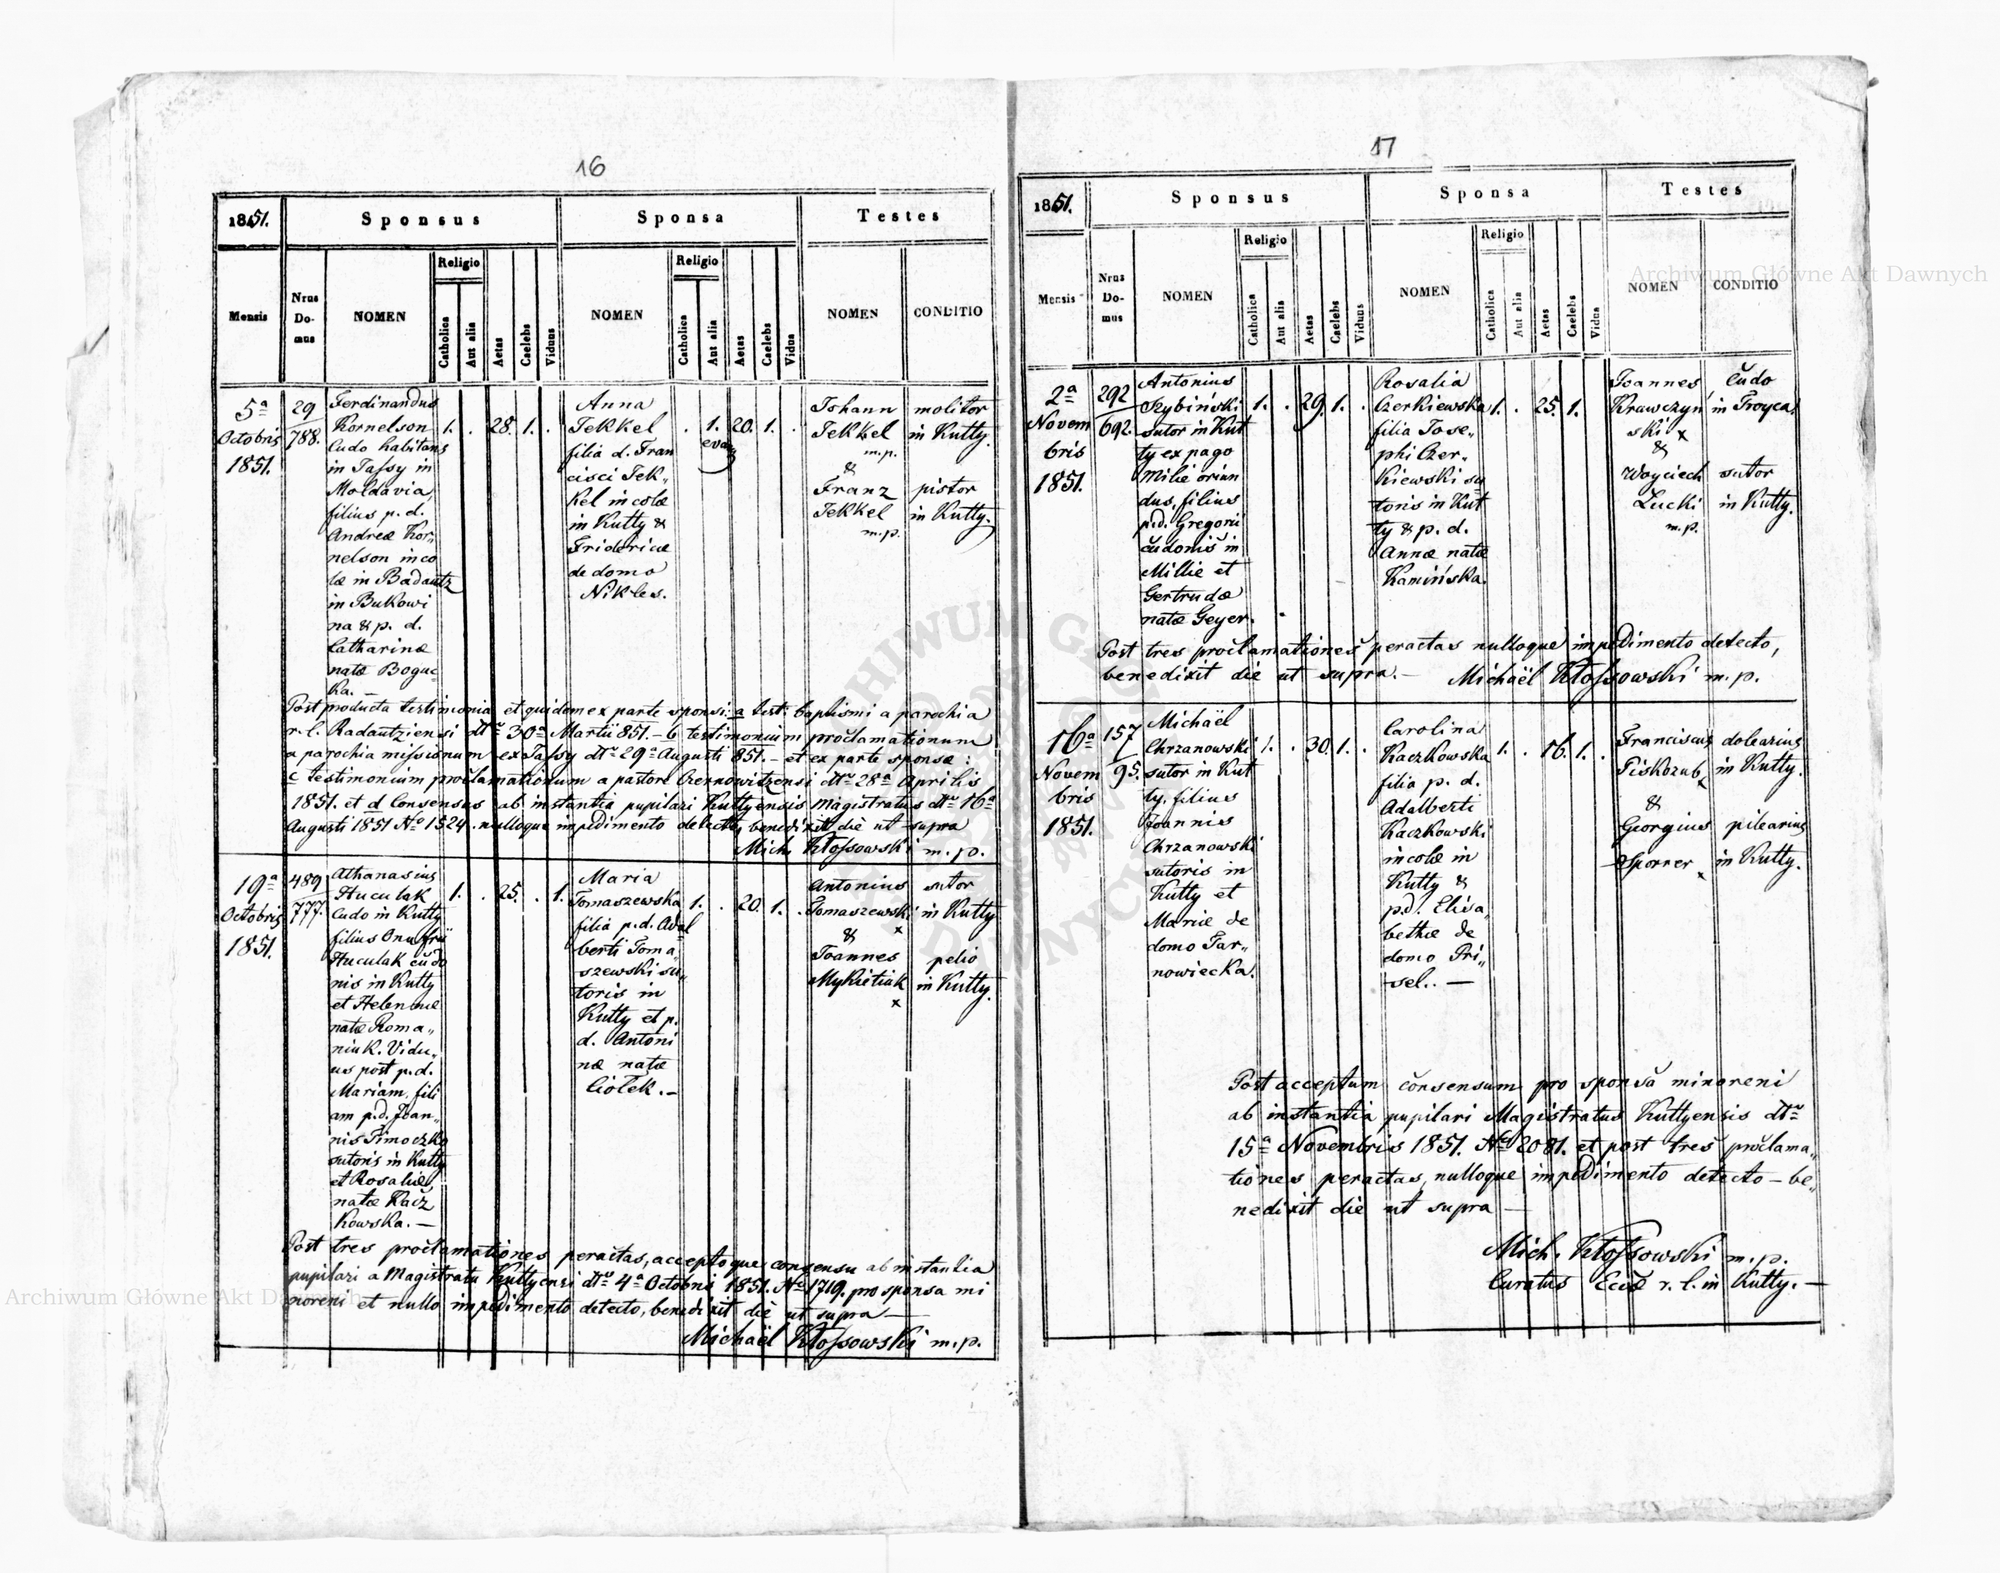 16
1851.
Sponsus
Sponsa
Testes
Mensis
Nrus Do- mus
NOMEN
Religio
Catholica
Aut alia
Aetas
Caelebs
Viduus
NOMEN
Religio
Catholica
Aut alia
Aetas
Caelebs
Vidua
NOMEN
CONDITIO
5a
Octobris
1851.
29
788.
Ferdinandus
Kornelson
ludo habitans
in Jassy in
Moldavia,
filius p. d.
Andreæ Kor„
nelson inco
læ in Badautz
in Bukowi
na & p. d.
Catharinæ
natæ Boguc„
ka. —
1. . 28. 1. .
Anna
Jekkel
filia d. Fran
cisci Jek„
kel incolæ
in Kutty &
Fridericæ
de domo
Nikles.
. 1. 20. 1. .
evang
Johann
Jekkel
m.p.
&
Franz
Jekkel
m.p.
molitor
in Kutty.
pistor
in Kutty.
Post producta testimonia et quidem ex parte sponsi: a test: baptismi a parochia
r. l. Radautziensi dto 30a Martii 851. – b testimonium proclamationum
a parochia missionum ex Jassy dto 29a Augusti 851. – et ex parte sponsæ:
c testimonium proclamationum a pastore Czernowitzensi dto 28a Aprilis
1851. et d Consensus ab instantia pupilari Kuttyensis Magistratus dto 16a
Augusti 1851 No 1524. nulloque impedimento detecto, benedixit die ut supra
Mich. Kłossowski m. p.
19a
Octobris
1851.
489
777.
Athanasius
Huculak
ludo in Kutty
filius Onufrii
Huculak cudo
nis in Kutty
et Helenæ
natæ Roma„
niuk. Vidu„
us post p. d.
Mariam, fili
am p.d. Joan„
nis Timoczko
sutoris in Kutty
et Rosaliæ,
natæ Kacz
kowska. —
1. . 25. . 1.
Maria
Tomaszewska
filia p. d. Adal
berti Toma„
szewski su„
toris in
Kutty et p.
d. Antoni
næ natæ
Ciołek. —
1. . 20. 1. .
Antonius
Tomaszewski
x
&
Joannes
Mykietiuk
x
sutor
in Kutty
pelio
in Kutty.
Post tres proclamationes peractas, acceptoque consensu ab instantia
pupilari a Magistratu Kuttyensi dto 4a Octobris 1851. No 1719. pro sponsa mi
noreni et nullo impedimento detecto, benedixit die ut supra —
Michaël Kłossowski m. p.
17
1851.
Sponsus
Sponsa
Testes
Mensis
Nrus Do- mus
NOMEN
Religio
Catholica
Aut alia
Aetas
Caelebs
Viduus
NOMEN
Religio
Catholica
Aut alia
Aetas
Caelebs
Vidua
NOMEN
CONDITIO
2a
Novem
bris
1851.
292
692.
Antonius
Szybiński
sutor in Kut
ty ex pago
Milie oriun
dus, filius
p.d. Gregorii
cudonis in
Millie et
Gertrudæ
natæ Geyer.
1. . 29. 1. .
Rosalia
Czerkiewska
filia Jose„
phi Czer„
kiewski su
toris in Kut
ty & p. d.
Annæ natæ
Kamińska.
1. . 25. 1.
Joannes
Krawczyń
ski x
&
Woyciech
Łucki
m. p.
Cudo
in Troyca.
sutor
in Kutty.
Post tres proclamationes peractas nulloque impedimento detecto,
benedixit die ut supra. — Michaël Kłossowski m. p.
16a
Novem
bris
1851.
157
95.
Michaël
Chrzanowski
sutor in Kut
ty, filius
Joannis
Chrzanowski
sutoris in
Kutty et
Mariæ de
domo Tar„
nowiecka.
1. . 30. 1. .
Carolina
Kaczkowska
filia p. d.
Adalberti
Kaczkowski
incolæ in
Kutty &
p.d. Elisa„
bethæ de
domo Pri„
sel. . —
1. . 16. 1. .
Franciscus
Piskozub x
&
Georgius
Sporrer x
dolearius
in Kutty.
pilearius
in Kutty.
Post acceptum consensum pro sponsa minoreni
ab instantia pupilari Magistratus Kuttyensis dto
15a Novembris 1851. No 2081. et post tres proclama„
tiones peractas, nulloque impedimento detecto – be„
nedixit die ut supra —
Mich. Kłossowski m. p.
Curatus Eccæ r. l. in Kutty. —
Archiwum Główne Akt Dawnych
Archiwum Główne Akt Dawnych